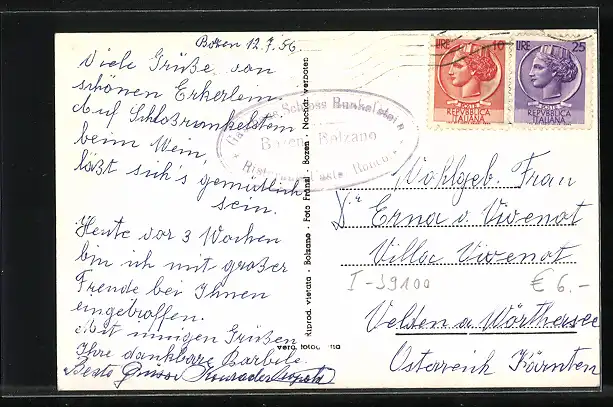 Bozen 12.7.56.
Viele Grüße von
schönen Erkerlein.
Auf Schloßrunkelstein
beim Wein,
läßt sich's gemütlich
sein.
Heute vor 3 Wochen
bin ich mit großer
Freude bei Ihnen
eingetroffen.
Mit innigen Grüßen
Ihre dankbare
Beste Grüsse
Schloss Runkelstein
Bozen - Bolzano
Riprod. vietata - Bolzano - Foto Fränzl - Bozen - Nachdr. verboten
vera fotog
LIRE 10
POSTE
REPVBBLICA
ITALIANA
LIRE 25
POSTE
REPVBBLICA
ITALIANA
Wohlgeb. Frau
Dr Erna v. Vivenot
Villa Vivenot
I-39100
€ 6.-
Velden a. Wörthersee
Österreich Kärnten